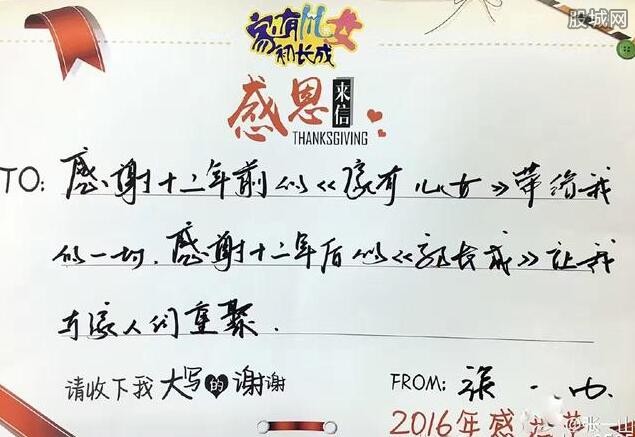 股城网
家有儿女
初长成
感恩来信
THANKSGIVING
TO: 感谢十二年前的《家有儿女》带给我
的一切.感谢十二年后的《初长成》让我
与家人们重聚.
请收下我大写的谢谢
FROM: 张一山
2016年感恩节
@张一山